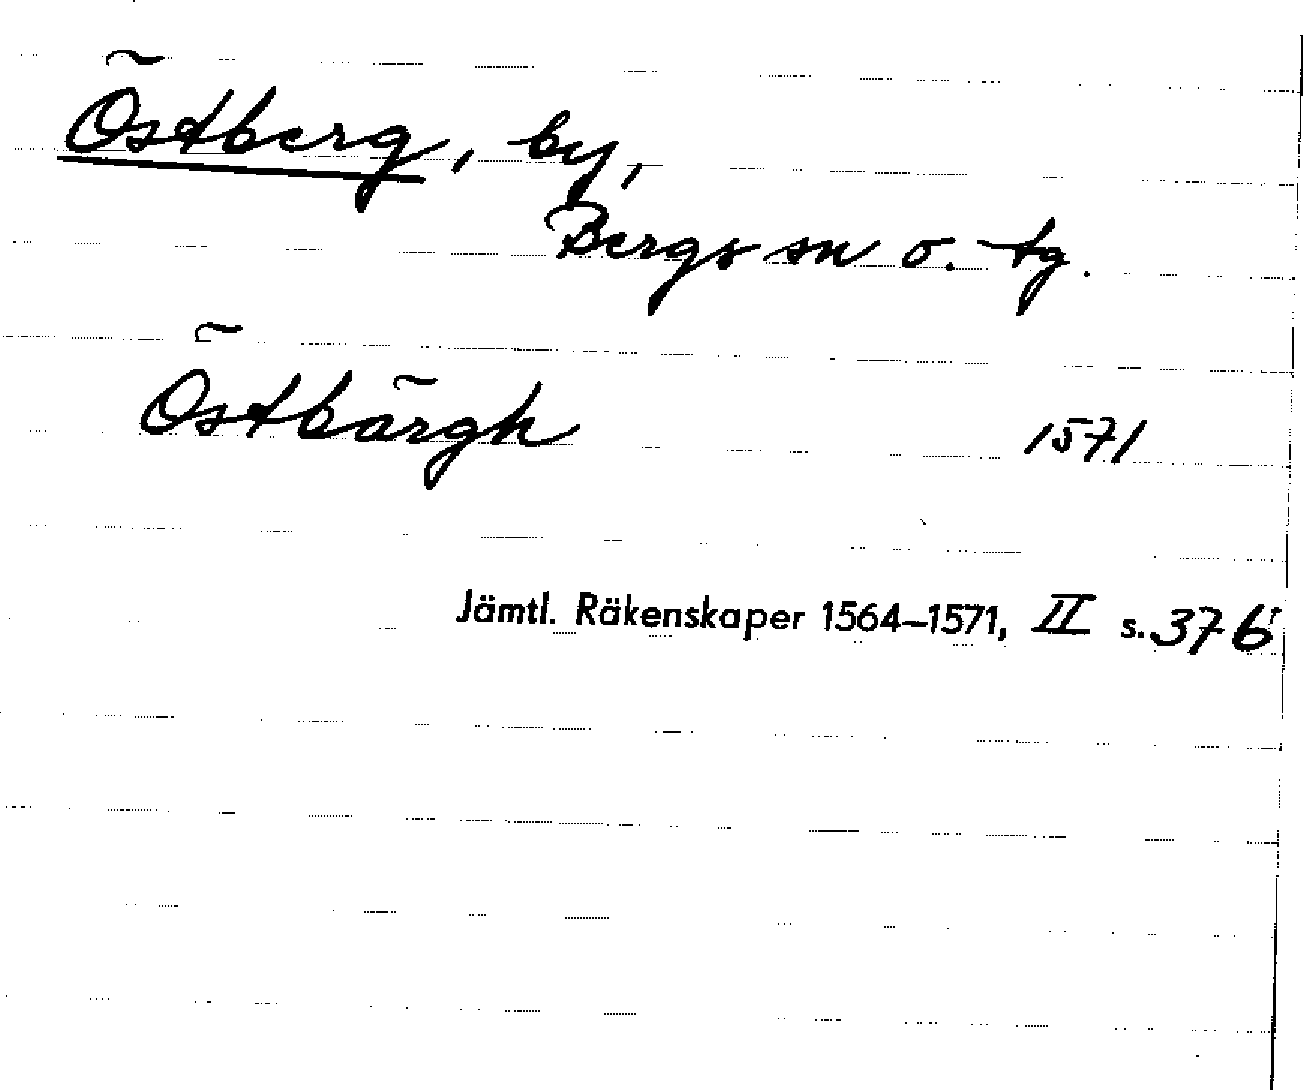 Östberg, by,
Bergs sn o. tg.
Östbärgh 1571
Jämtl. Räkenskaper 1564–1571, II s. 376